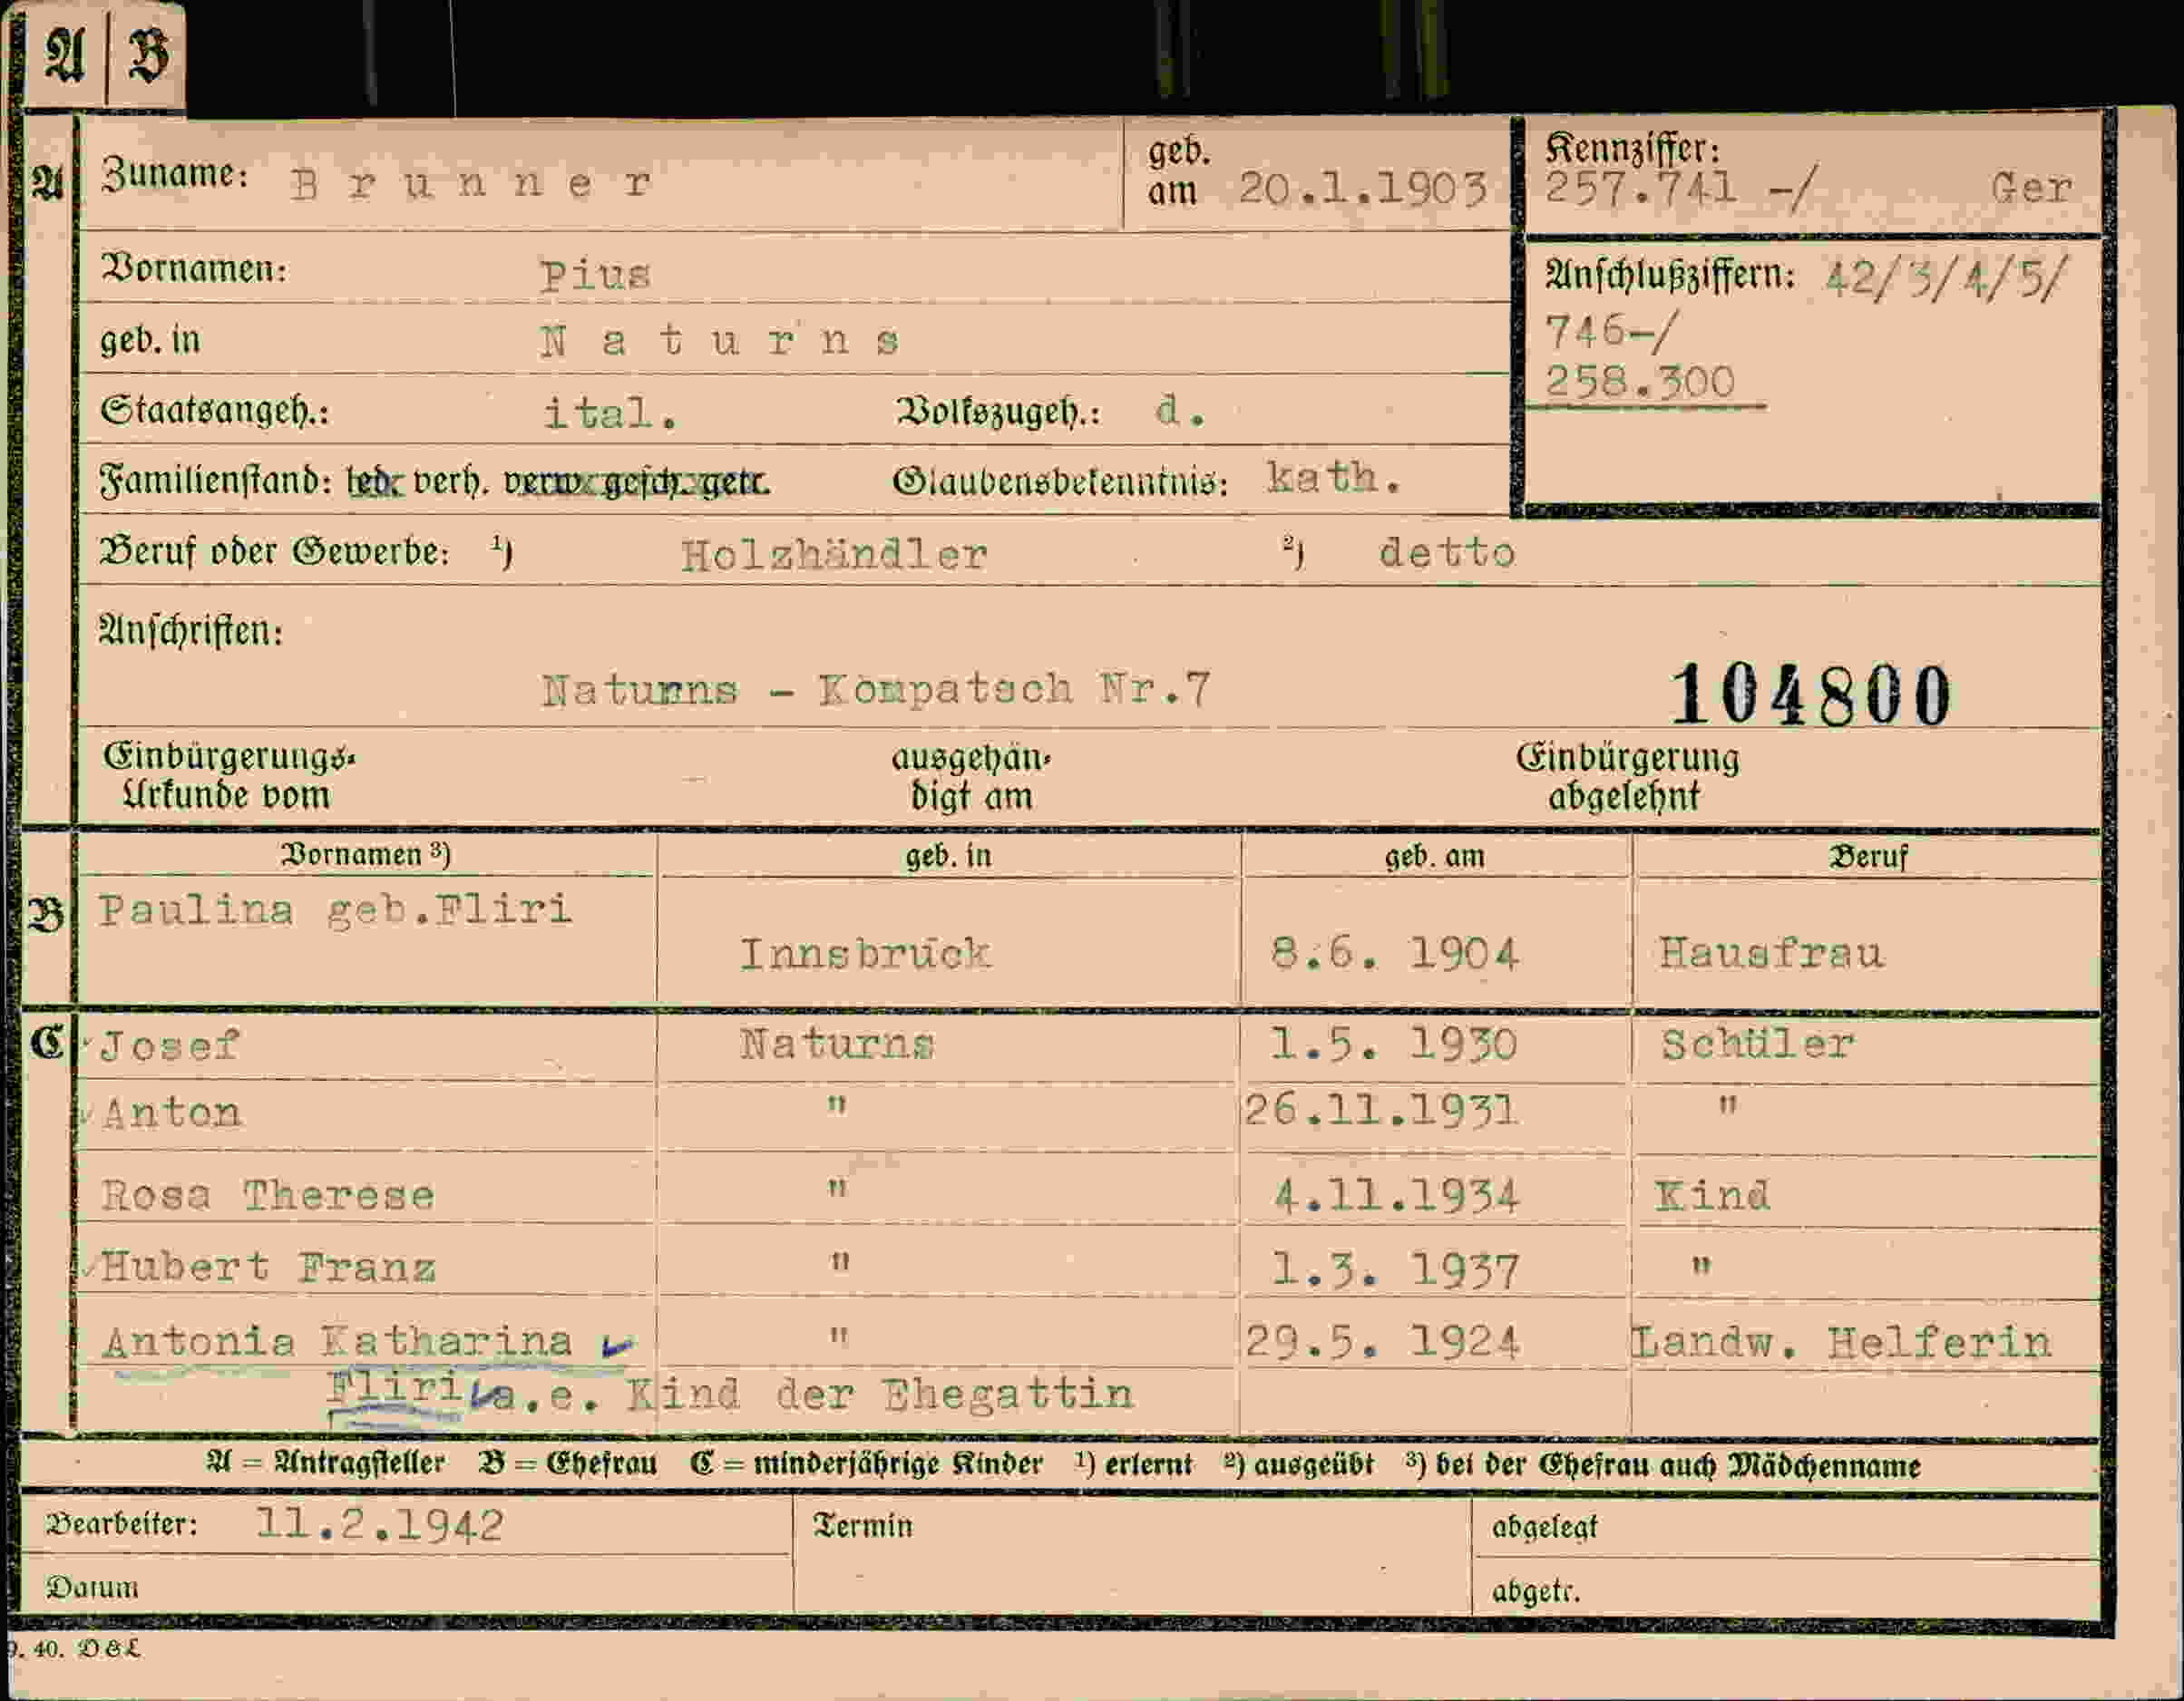 A B
A Zuname: Brunner geb. am 20.1.1903 Kennziffer: 257.741 -/ Ger
Vornamen: Pius Anschlußziffern: 42/3/4/5/
746-/
258.300
geb. in Naturns
Staatsangeh.: ital. Volkszugeh.: d.
Familienstand: led. verh. verw. gesch. getr. Glaubensbekenntnis: kath.
Beruf oder Gewerbe: 1) Holzhändler 2) detto
Anschriften:
Naturns - Kompatsch Nr.7 104800
Einbürgerungs- ausgehän- Einbürgerung
Urkunde vom digt am abgelehnt
Vornamen 3) geb. in geb. am Beruf
B Paulina geb.Fliri
Innsbruck 8.6. 1904 Hausfrau
C Josef Naturns 1.5. 1930 Schüler
Anton " 26.11.1931 "
Rosa Therese " 4.11.1934 Kind
Hubert Franz " 1.3. 1937 "
Antonia Katharina " 29.5. 1924 Landw. Helferin
Fliri a.e. Kind der Ehegattin
A = Antragsteller B = Ehefrau C = minderjährige Kinder 1) erlernt 2) ausgeübt 3) bei der Ehefrau auch Mädchenname
Bearbeiter: 11.2.1942 Termin abgelegt
Datum abgetr.
9. 40. D&L